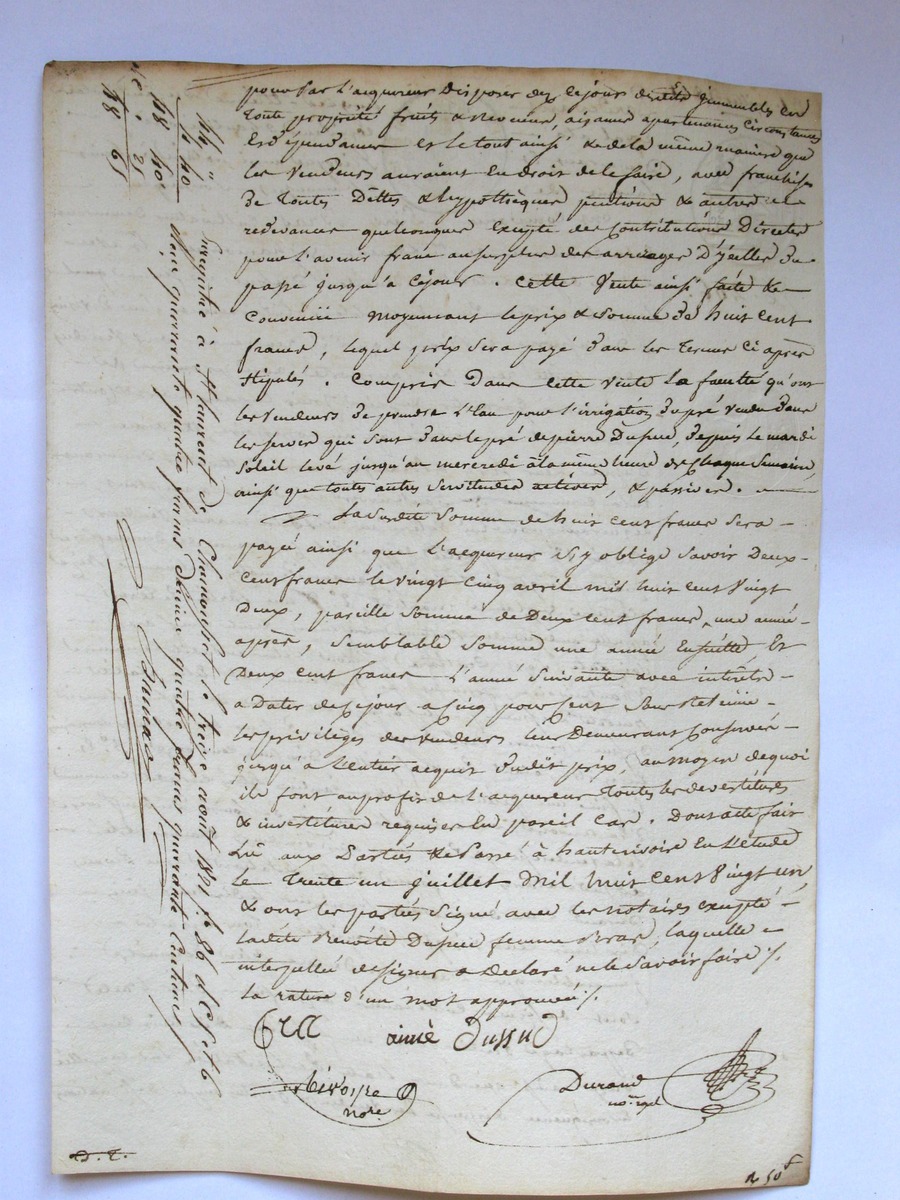 pour par l'acquereur disposer dez cejour desdits immeubles en
toute propriété fruits & revenus, aisances apartenances circonstances
et dépendances et le tout ainsi & de la même maniere que
les vendeurs auraient eu droit de le faire, avec franchises
de toutes dettes & hypothèques pentions & autres
redevances quelconques excepté des Contributions Directes
pour l'avenir franc au surplus des arrerages d'ycelles du
passé jusqu'à cejour. Cette vente ainsi faite &
convenue moyennant le prix & somme de huit cent
francs, lequel prix sera payé dans les termes ci après
stipulés. Compris dans cette vente la faculté qu'ont
les vendeurs de prendre l'eau pour l'irrigation du pré vendu dans
les serves qui sont dans le pré de pierre Dupuy, depuis le mardi
soleil levé jusqu'au mercredi à la même heure de chaque semaine,
ainsi que toutes autres servitudes actives, & passives.
La susdite somme de huit cent francs sera
payée ainsi que l'acquereur s'y oblige savoir Deux-
Cent francs le vingt cinq avril mil huit cent vingt
Deux, pareille somme de Deux cent francs une année
après, semblable somme une année ensuitte et
Deux cent francs l'année suivante avec intérêts
a Dater de cejour a cinq pour cent sans retenue
les privilèges des vendeurs leur Demeurant conservés
jusqu'à l'entier acquit dudit prix, au moyen de quoi
ils font au profit de l'acquereur toutes les devestitures
& investitures requises en pareil cas. Dont acte fait
Lu aux Parties & Passé à hauterivoire en l'étude
le trente un juillet mil huit cent vingt un
& ont les parties signé avec les notaires excepté
ladite Benoite Dupuy femme, laquelle
interpellée de signer a Declaré ne le savoir faire ./.
La rature d'un mot approuvée ./.
aimé
nore
Durand
D. T.
50 f
44 "
4 40
48 40
Enregistré à St Laurent de Chamousset le treize août 1821 fo 86
Reçu quarante quatre francs Décime quatre francs quarante Centimes